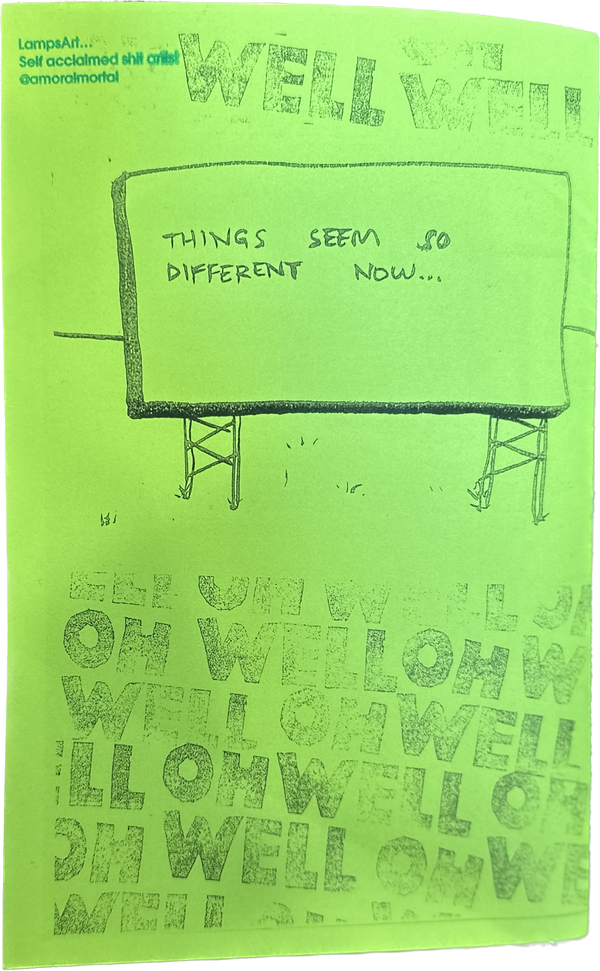 LampsArt...
Self acclaimed shit artist
@amoralmortal
WELL WELL
THINGS SEEM SO
DIFFERENT NOW...
ELL OH WELL OH
OH WELL OH W
WELL OH WELL
ELL OH WELL OH
OH WELL OH WE
WELL OH WE